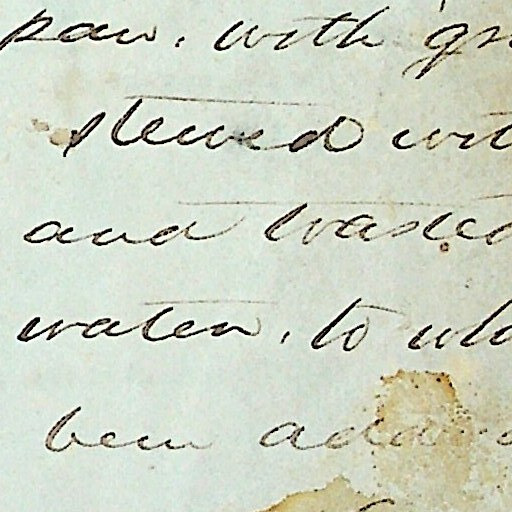 pain. with gr
stewed wit
and wasted
water, to wh
been added